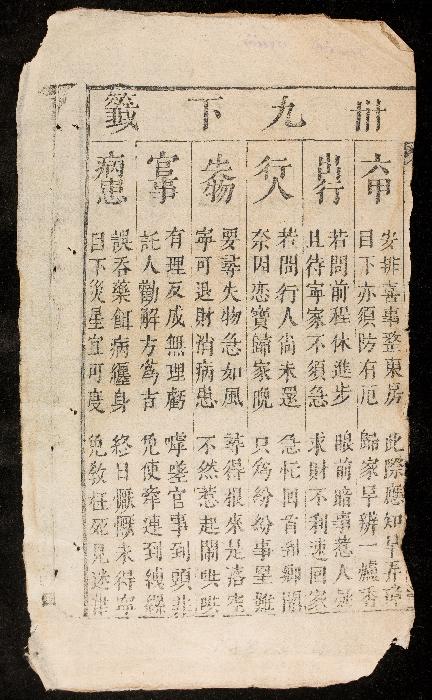 卅九下籤
六甲
安排喜事整東房 此際應知
目下亦須防有厄 歸家早辨一爐香
出行
若問前程休進步 眼前暗裏惹人
且待寧家不須急 求財不利速回家
行人
若問行人尚未還 急忙回首到鄉關
奈因恋寶歸家晚 只為紛紛事
失物
要尋失物急如風 尋得根來是落空
寧可退財消病患 不然惹起鬧哄哄
官事
有理反成無理虧 官事到頭非
託人勸解方為吉 免使牽連到
病患
誤吞藥餌病纏身 終日懨懨未得寧
目下災星宜可度 免教枉死見迷